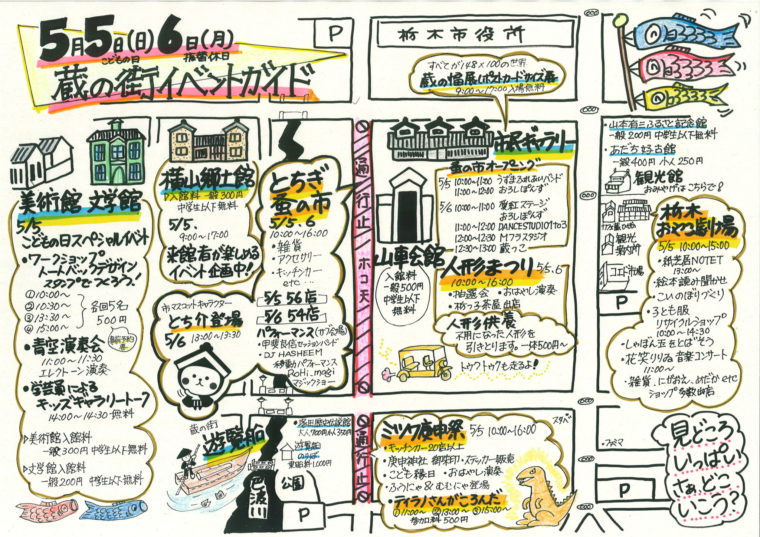 5月5日(日)6日(月)
こどもの日 振替休日
蔵の街イベントガイド
P
栃木市役所
すべてが148×100の世界
蔵の街展(ポストカードサイズ展)
9:00〜17:00入場無料
美術館 文学館
5/5
こどもの日スペシャルイベント
・ワークショップ
トートバックデザイン
スタンプでつくろう!
①10:00〜
②10:30〜
③13:30〜
④15:00〜
各回5名
500円
・青空演奏会
11:00〜11:30
エレクトーン演奏
・学芸員による
キッズギャラリートーク
14:00〜14:30 無料
▷美術館入館料
一般300円 中学生以下無料
▷文学館入館料
一般200円 中学生以下無料
横山郷土館
▷入館料 一般300円
中学生以下無料
5/5、
9:00〜17:00
来館者が楽しめる
イベント企画中!
市マスコットキャラクター
とち介登場
5/6 13:00〜13:30
とちぎ
蚤の市
5/5・6
10:00〜16:00
・雑貨
・アクセサリー
・キッチンカー
etc…
5/5 56店
5/6 54店
パフォーマンス(サブ会場)
・甲斐昌信セッションバンド
・DJ HASHEEM
・移動パフォーマンス
RoHi_magi
マジックショー
通行止
ホコ天
通行止
市民ギャラリー
蚤の市オープニング
5/5 10:00〜11:00 うずまふれあいバンド
11:00〜12:00 おろしぽんず
5/6 10:00〜11:00 愛虹ステージ
おろしぽんず
11:00〜12:00 DANCESTUDIO1to3
12:00〜12:30 Mフラスタジオ
12:30〜13:30 蔵っこ
山車会館
入館料
一般500円
中学生以下
無料
人形まつり 5/5、6
10:00〜16:00
・抽選会 ・おはやし演奏
・栃っ子茶屋出店
人形供養
不用になった人形を
引きとります。一体500円〜
トゥクトゥクも走るよ!
・山本有三ふるさと記念館
一般200円 中学生以下無料
・あだち好古館
一般400円 小人250円
観光館
おみやげはこちらで!
観光案内所
コエド市場
P
栃木
おやこ劇場
5/5 10:00〜15:00
・紙芝居NOTET
13:00〜
・絵本読み聞かせ
・こいのぼりづくり
・子ども服
リサイクルショップ
10:00〜14:30
・しゃぼん玉をとばそう
・花笑りりぃ 音楽コンサート
11:00〜
・雑貨、にがおえ、めだか etc
ショップ多数出店
蔵の街
遊覧船
巴波川
公園
P
・塚田歴史伝説館
遊覧船
のりば
乗船料1,000円
ミツワ庚申祭 5/5 10:00〜16:00
・キッチンカー20台以上
・庚申神社 御朱印・ステッカー販売
・こども縁日 ・おはやし演奏
・ふうにゃ&むむにゃ登場
・ティラノさんがころんだ
①11:00〜 ②13:00〜 ③15:00〜
参加料500円
スタバ
・ファミマ
P
P
見どころ
いっぱい
さぁ、どこ
いこう?